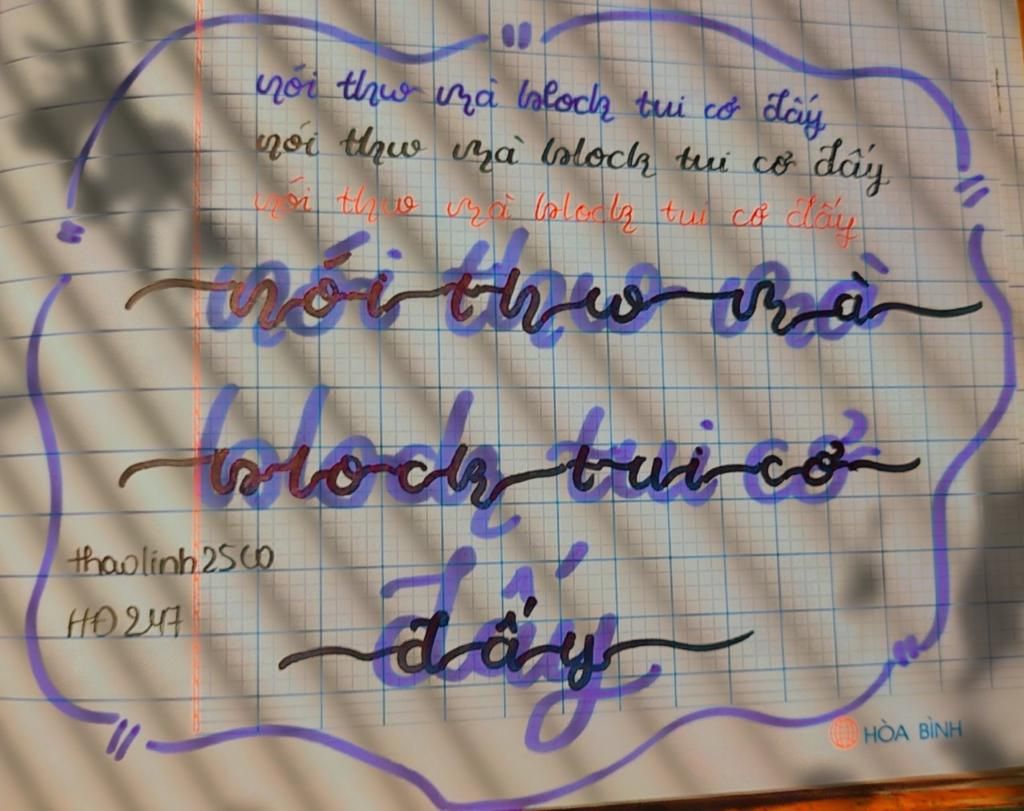 nói thw mà block tui cơ đấy
nói thw mà block tui cơ đấy
nói thw mà block tui cơ đấy
nói thw mà
block tui cơ
đấy
thaolinh2500
HĐ247
HÒA BÌNH